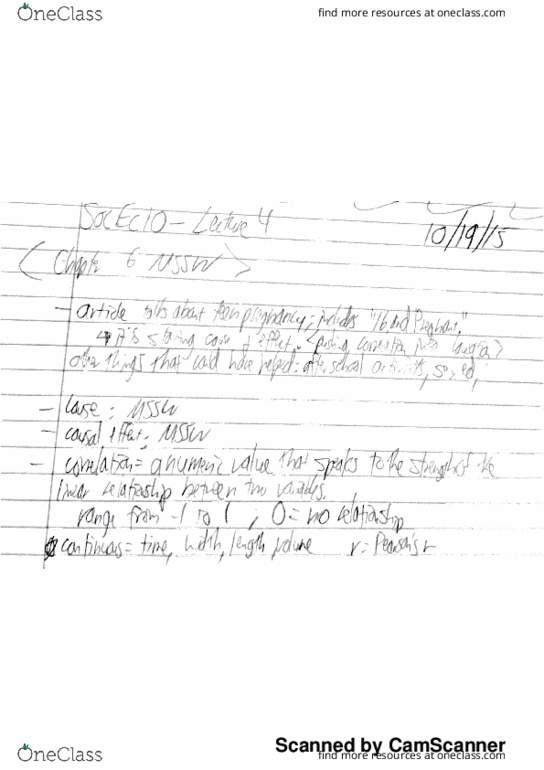 OneClass find more resources at oneclass.com
SocEc10 - Lecture 4
10/19/15
<Chapter 6 MSSW>
- article talks about teen pregnancy; includes "16 and Pregnant."
↳ it's stating cause + effect. <pushing correlation into
other things that could have helped: after school activities, sex ed,
- Cause: MSSW
- causal effect: MSSW
- correlation = a numeric value that speaks to the strength of the
linear relationship between two variables.
range from -1 to 1 ; 0 = no relationship
continuous = time, width, length, volume r = Pearson's r
Scanned by CamScanner
OneClass find more resources at oneclass.com